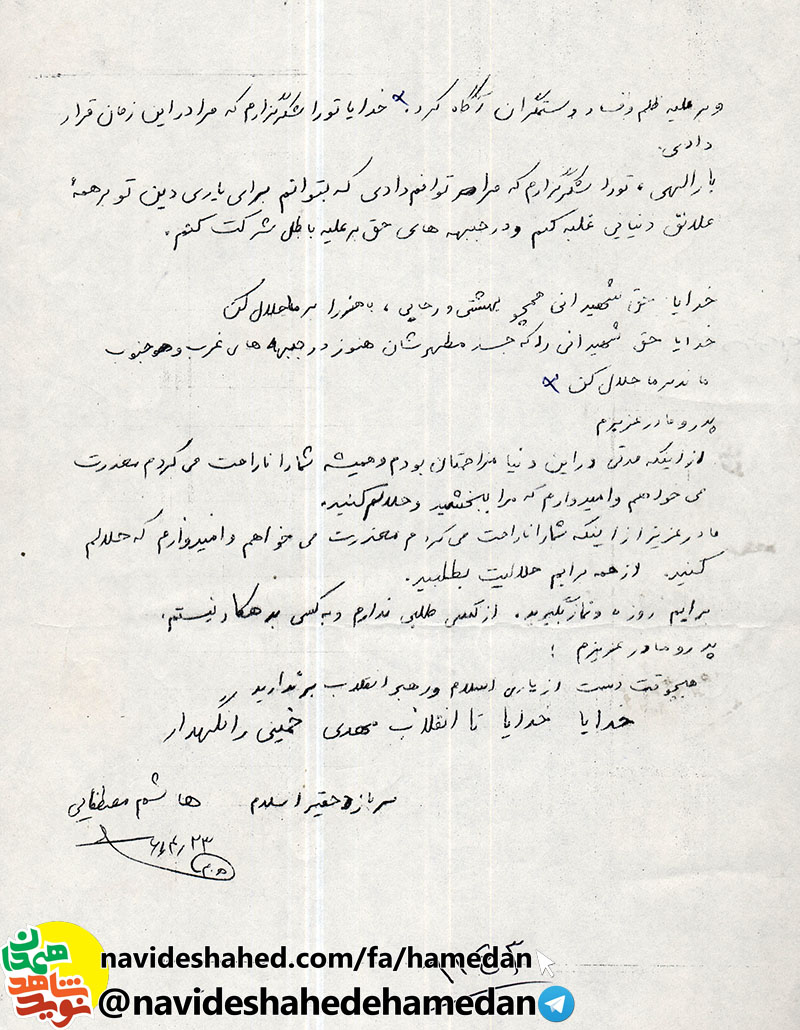 و بر علیه ظلم و فساد و ستمگران آگاه کرد. خدایا تو را شکرگزارم که مرا در این زمان قرار
دادی.
بار الهی، تو را شکرگزارم که مرا توانم دادی که بتوانم برای یاری دین تو بر همهٔ
علائق دنیایی غلبه کنم و در جبهه های حق بر علیه باطل شرکت کنم.
خدایا حق شهیدانی همچو بهشتی و رجایی، باهنر را بر ما حلال کن
خدایا حق شهیدانی را که جسد مطهرشان هنوز در جبهه های غرب و جنوب
مانده بر ما حلال کن
پدر و مادر عزیزم
از اینکه مدتی در این دنیا مزاحمتان بودم و همیشه شما را ناراحت می کردم معذرت
می خواهم و امیدوارم که مرا ببخشید و حلالم کنید.
مادر عزیز از اینکه شما را ناراحت می کردم معذرت می خواهم و امیدوارم که حلالم
کنید. از همه برایم حلالیت بطلبید.
برایم روزه و نماز بگیرید. از کسی طلبی ندارم و به کسی بدهکار نیستم.
پدر و مادر عزیزم !
هیچوقت دست از یاری اسلام و رهبر انقلاب برندارید
خدایا خدایا تا انقلاب مهدی خمینی را نگهدار
سرباز حقیر اسلام هاشم مصطفایی
۶۱/۴/۲۳
نوید شاهد همدان
navideshahed.com/fa/hamedan
@navideshahedehamedan